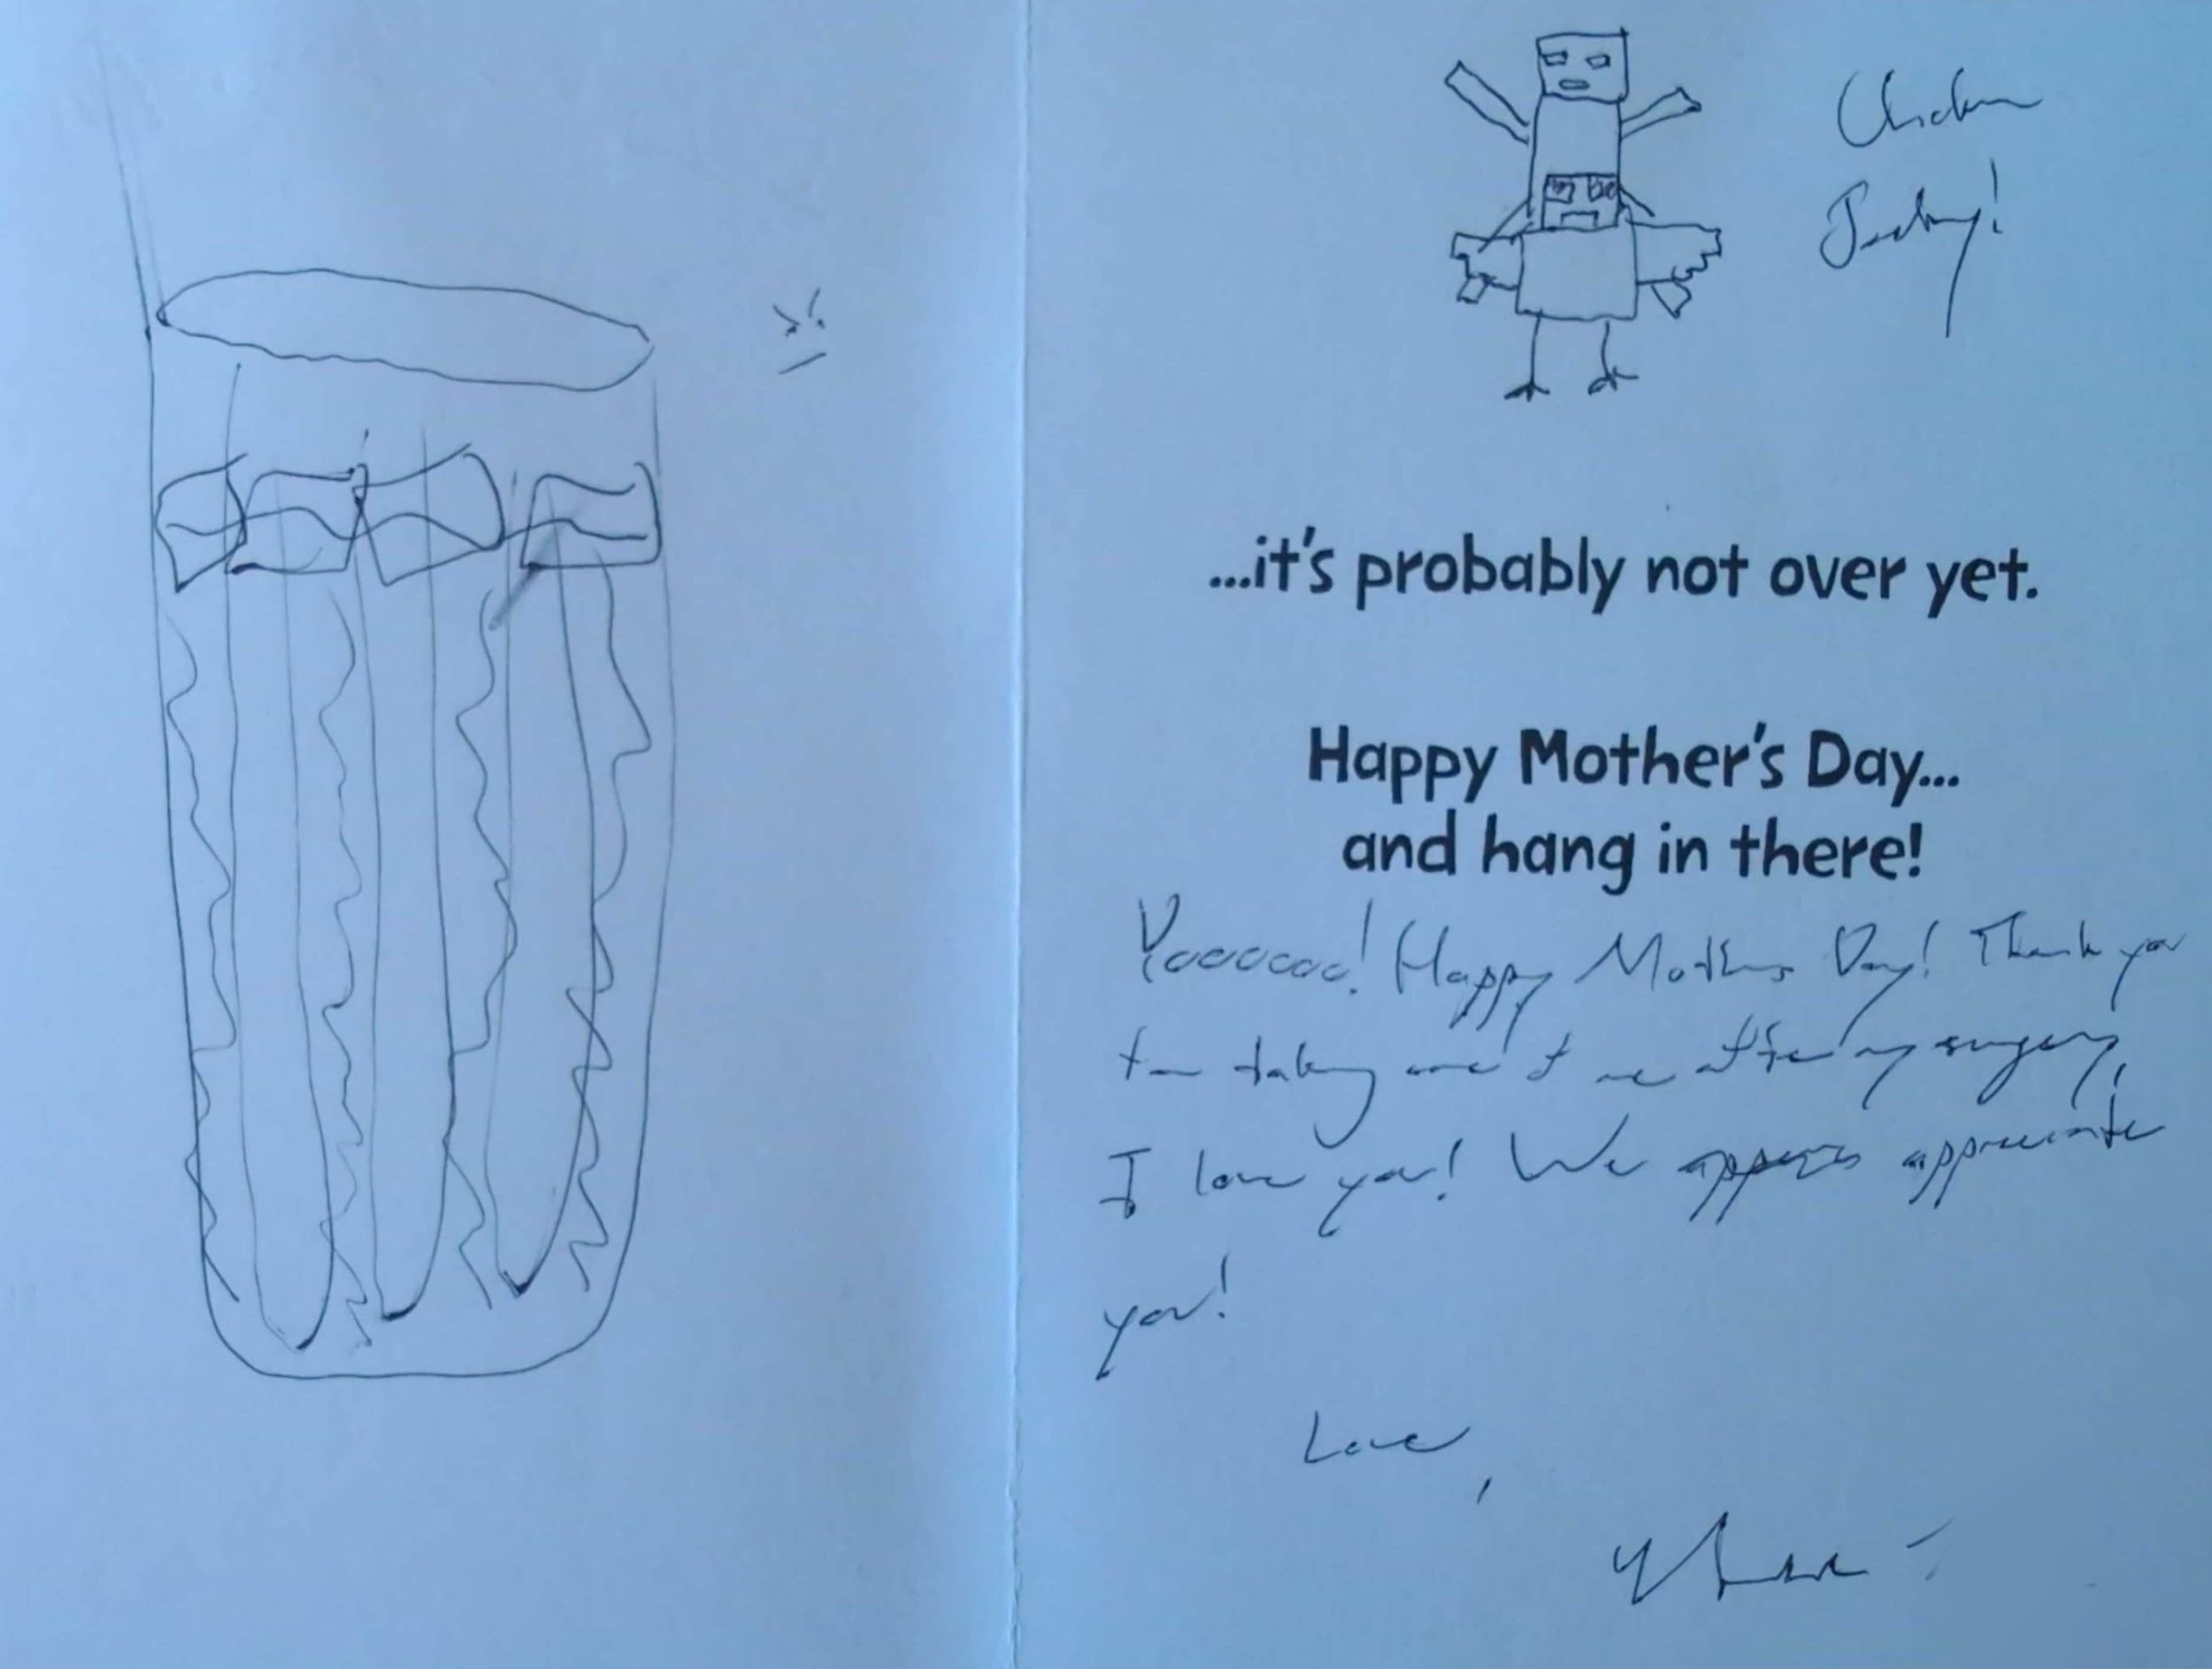 Chicken
Jockey!
...it's probably not over yet.
Happy Mother's Day...
and hang in there!
Yooooooo! Happy Mothers Day! Thank you
for taking care of me after my surgery!
I love you! We appreciate
you!
Love,